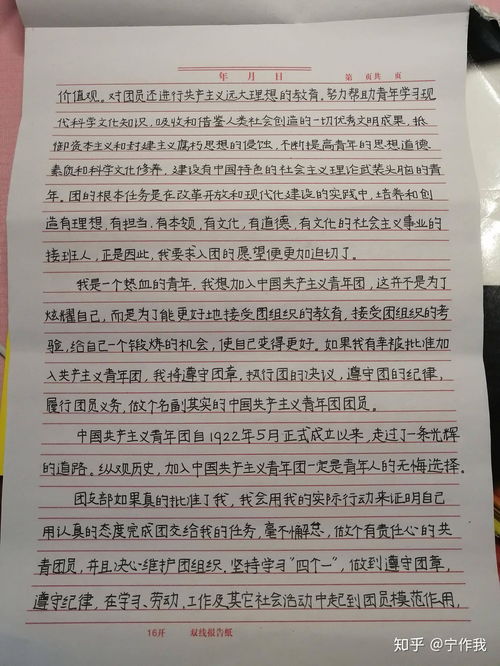 年 月 日 第 页共 页
价值观。对团员还进行共产主义远大理想的教育。努力帮助青年学习现
代科学文化知识，吸收和借鉴人类社会创造的一切优秀文明成果，抵
御资本主义和封建主义腐朽思想的侵蚀，不断提高青年的思想道德
素质和科学文化修养，建设有中国特色的社会主义理论武装头脑的青
年。团的根本任务是在改革开放和现代化建设的实践中，培养和创
造有理想，有担当，有本领，有文化，有道德，有文化的社会主义事业的
接班人，正是因此，我要求入团的愿望便更加迫切了。
我是一个热血的青年，我想加入中国共产主义青年团，这并不是为了
炫耀自己，而是为了能更好地接受团组织的教育，接受团组织的考
验，给自己一个锻炼的机会，使自己变得更好。如果我有幸被批准加
入共产主义青年团，我将遵守团章，执行团的决议，遵守团的纪律，
履行团员义务，做个名副其实的中国共产主义青年团团员。
中国共产主义青年团自1922年5月正式成立以来，走过了一条光辉
的道路。纵观历史，加入中国共产主义青年团一定是青年人的无悔选择。
团支部如果真的批准了我，我会用我的实际行动来证明自己
用认真的态度完成团交给我的任务，毫不懈怠，做个有责任心的共
青团员，并且决心维护团组织，坚持学习“四个一”，做到遵守团章，
遵守纪律，在学习、劳动、工作及其它社会活动中起到团员模范作用，
16开 双线报告纸
知乎 @宁作我